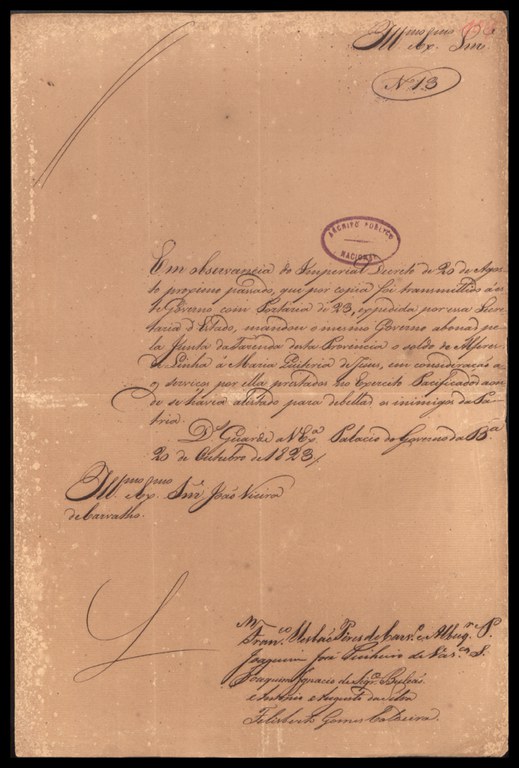 Illmos e Exmo Snr
No 13
ARCHIVO PUBLICO
NACIONAL
Em observancia do Imperial Decreto de 20 de Agos-
to proximo passado, que por copia foi transmittido á es-
te Governo com Portaria de 23, expedida por essa Secre-
taria d'Estado, mandou o mesmo Governo abonar pe-
la Junta da Fazenda desta Provincia o soldo de Alferes
de Linha á Maria Quiteria de Jesus, em consideração a-
os serviços por ella prestados no Exercito Pacificador aon-
de se havia alistado para debellar os inimigos da Pa-
tria.
Ds Guarde a V Exa. Palacio do Governo da Ba
20 de Outubro de 1823
Illmo e Exmo Snr João Vieira
de Carvalho.
Franco. Pires de Carvo. e Albuqe. P.
Joaquim José Pinheiro de Vascos. S.
Joaquim Ignacio de Siqa. Bulcão
Antonio Augusto da Silva
Felisberto Gomes Caldeira.